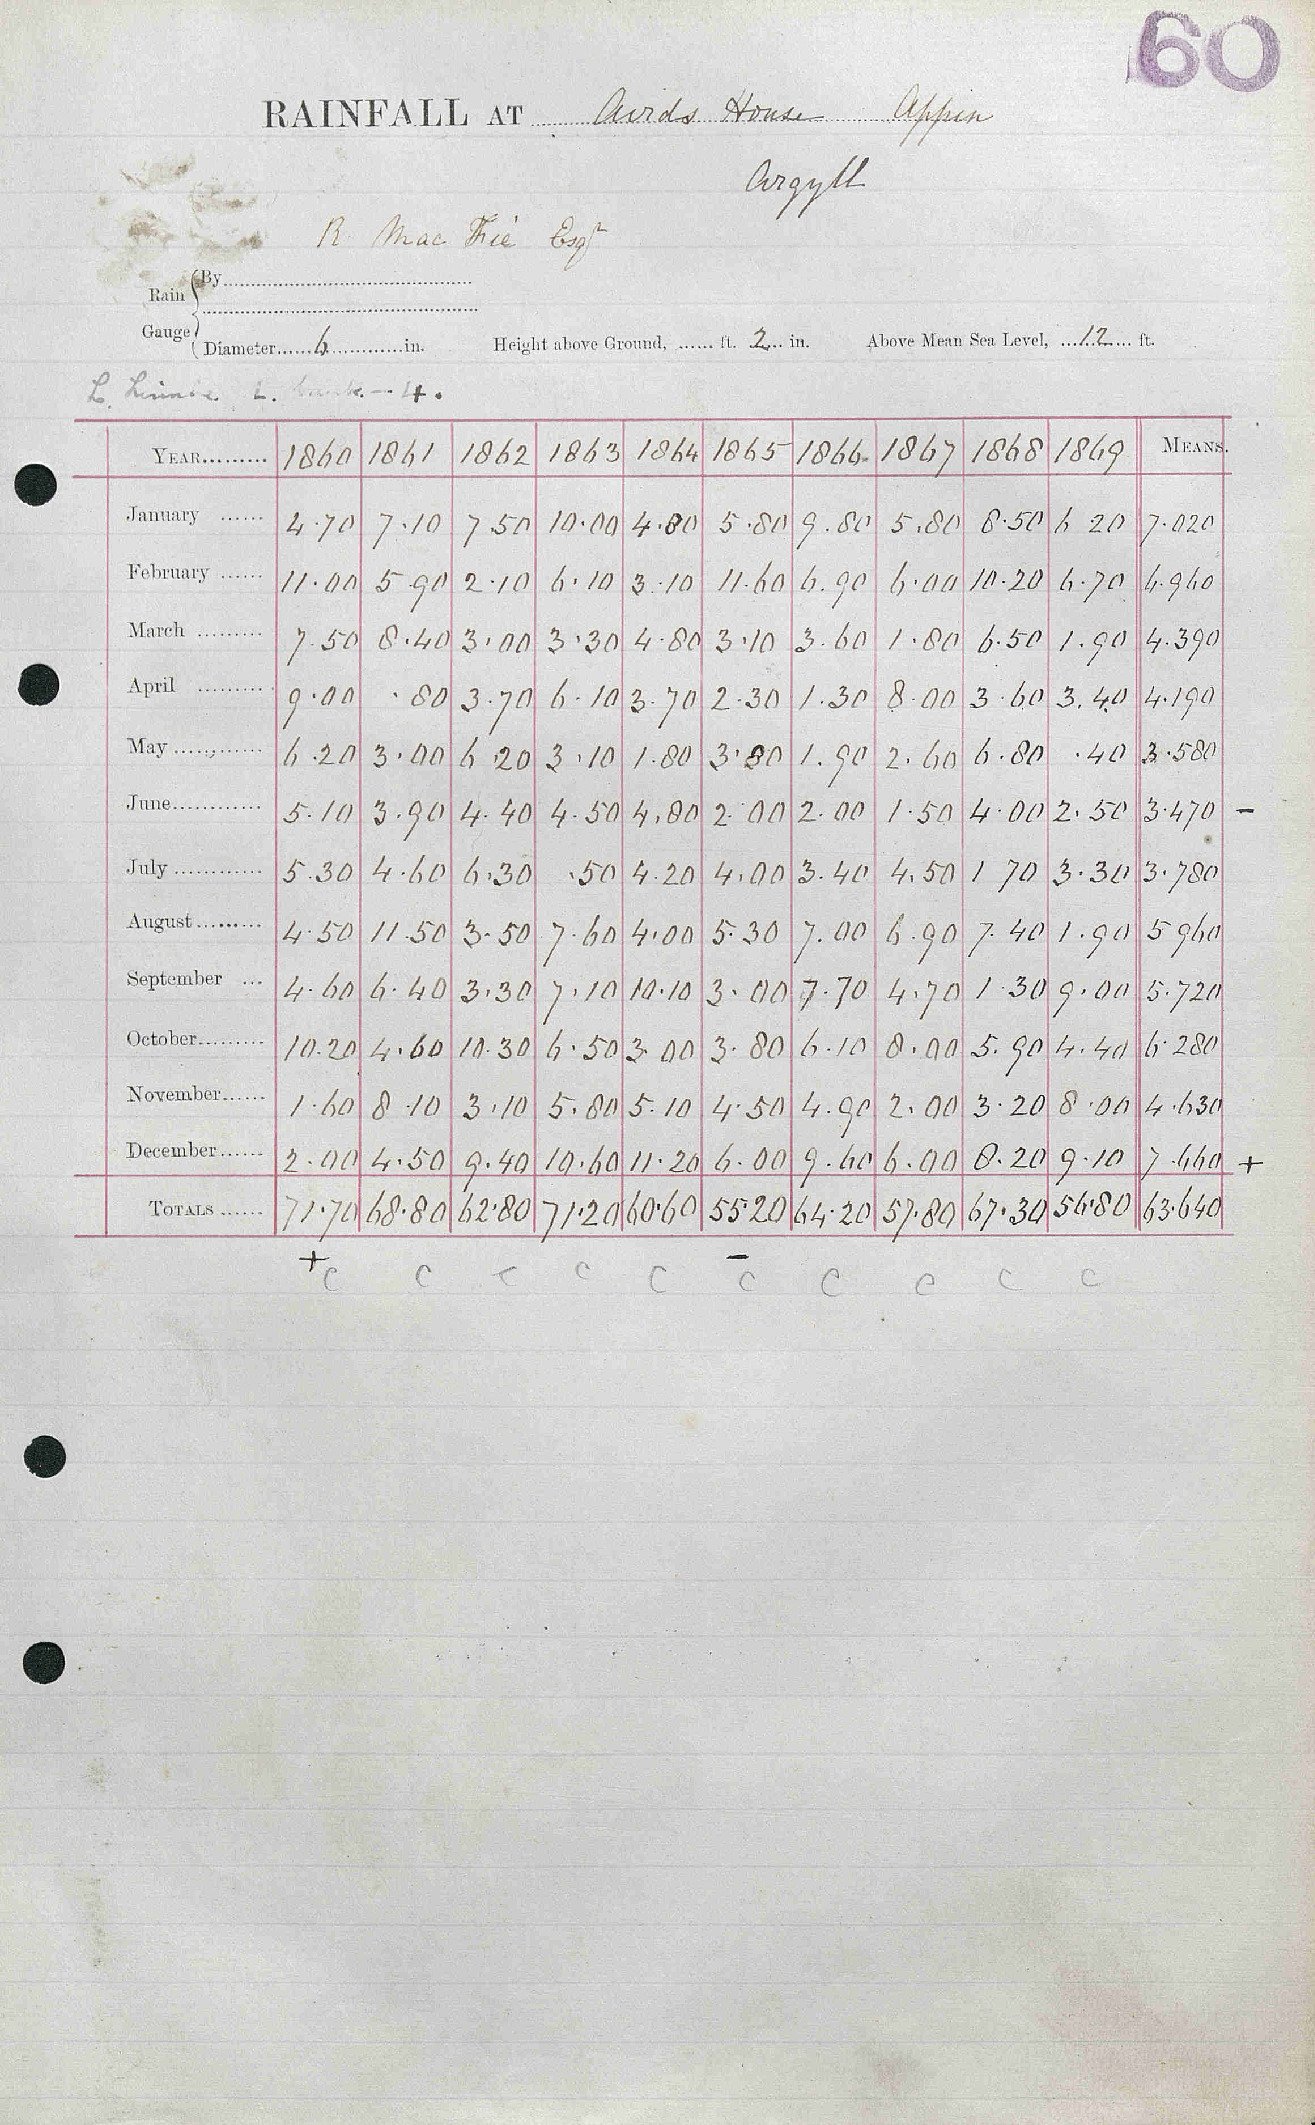 60
RAINFALL AT Airds House Appin
Argyll
R Mac Fie Esqr
Rain Gauge { By
Diameter 6 in. Height above Ground, ft. 2 in. Above Mean Sea Level, 12 ft.
L. 4.
YEAR 1860 1861 1862 1863 1864 1865 1866 1867 1868 1869 MEANS.
January 4.70 7.10 7.50 10.00 4.80 5.80 9.80 5.80 8.50 6.20 7.020
February 11.00 5.90 2.10 6.10 3.10 11.60 6.90 6.00 10.20 6.70 6.960
March 7.50 8.40 3.00 3.30 4.80 3.10 3.60 1.80 6.50 1.90 4.390
April 9.00 .80 3.70 6.10 3.70 2.30 1.30 8.00 3.60 3.40 4.190
May 6.20 3.00 6.20 3.10 1.80 3.80 1.90 2.60 6.80 .40 3.580
June 5.10 3.90 4.40 4.50 4.80 2.00 2.00 1.50 4.00 2.50 3.470 -
July 5.30 4.60 6.30 .50 4.20 4.00 3.40 4.50 1.70 3.30 3.780
August 4.50 11.50 3.50 7.60 4.00 5.30 7.00 6.90 7.40 1.90 5.960
September 4.60 6.40 3.30 7.10 10.10 3.00 7.70 4.70 1.30 9.00 5.720
October 10.20 4.60 10.30 6.50 3.00 3.80 6.10 8.00 5.90 4.40 6.280
November 1.60 8.10 3.10 5.80 5.10 4.50 4.90 2.00 3.20 8.00 4.630
December 2.00 4.50 9.40 10.60 11.20 6.00 9.60 6.00 8.20 9.10 7.660 +
TOTALS 71.70 68.80 62.80 71.20 60.60 55.20 64.20 57.80 67.30 56.80 63.640
+ -
C C C C C C C C C C